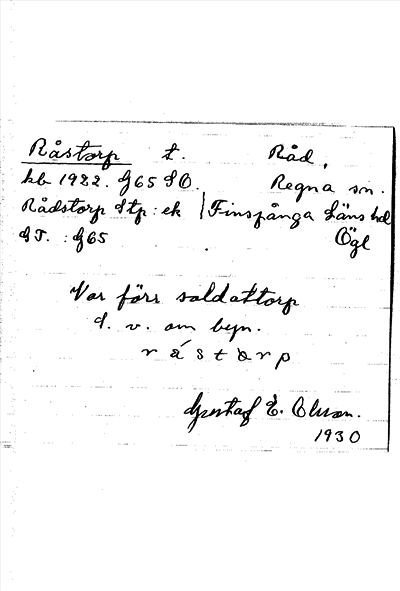 Råstorp t. Råd,
kb 1922. G65 SO. Regna sn.
Rådstorp Stp: ek Finspånga Läns hd
GT. : G65 Ögl
Var förr soldattorp
d. v. om byn.
råstorp
Gustaf E. Olsson.
1930